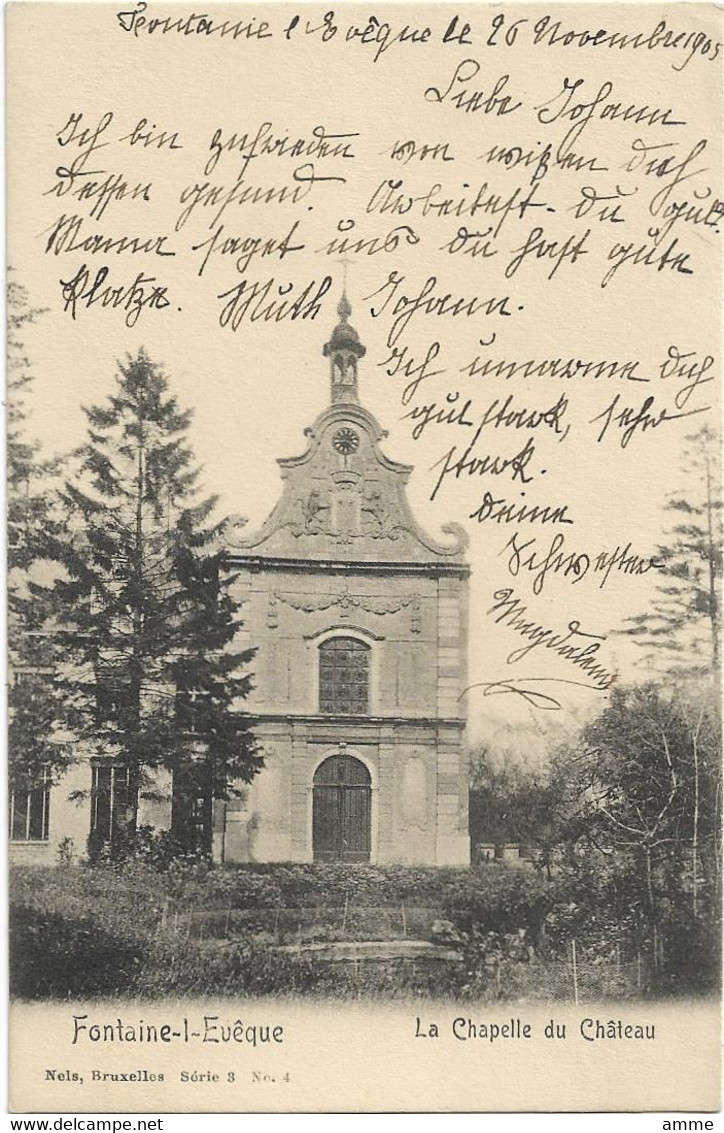 Fontaine l'Evêque le 26 Novembre 1905
Liebe Johann
Ich bin zufrieden von wißen dich
dessen gesund. Arbeitest du gut.
Mama saget uns du hast gute
Platze. Muth Johann.
Ich umarme dich
gut stark, sehr
stark.
Deine
Schwester
Magdalena
Fontaine-l-Evêque
La Chapelle du Château
Nels, Bruxelles Série 3 No. 4
amme